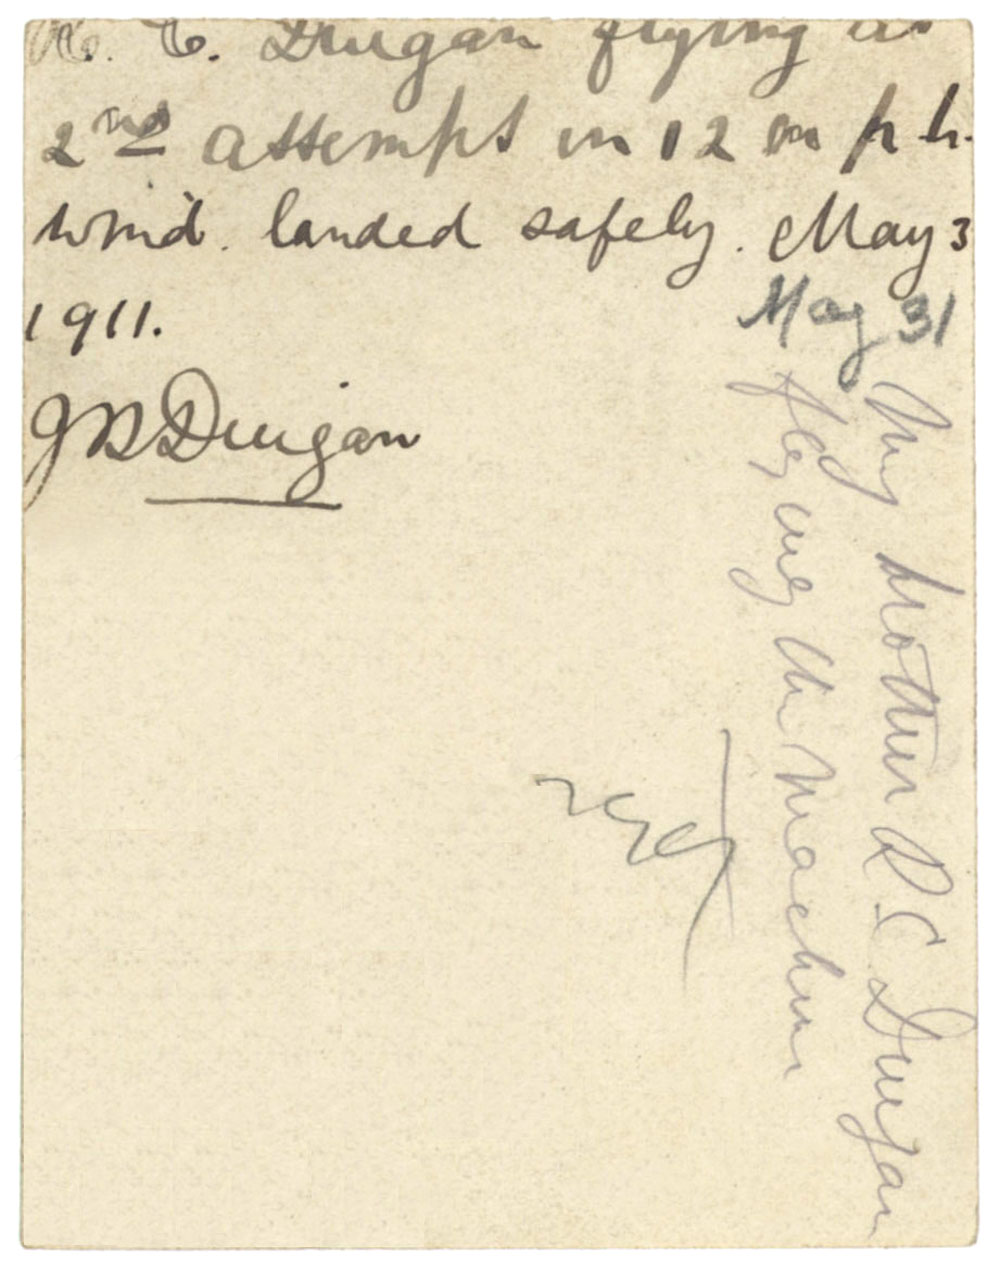 R. C. Duigan flying at
2nd attempt in 12 m p h.
wind. landed safely. May 3
1911.
May 31
J B Duigan
My brother R. C Duigan
flying the machine